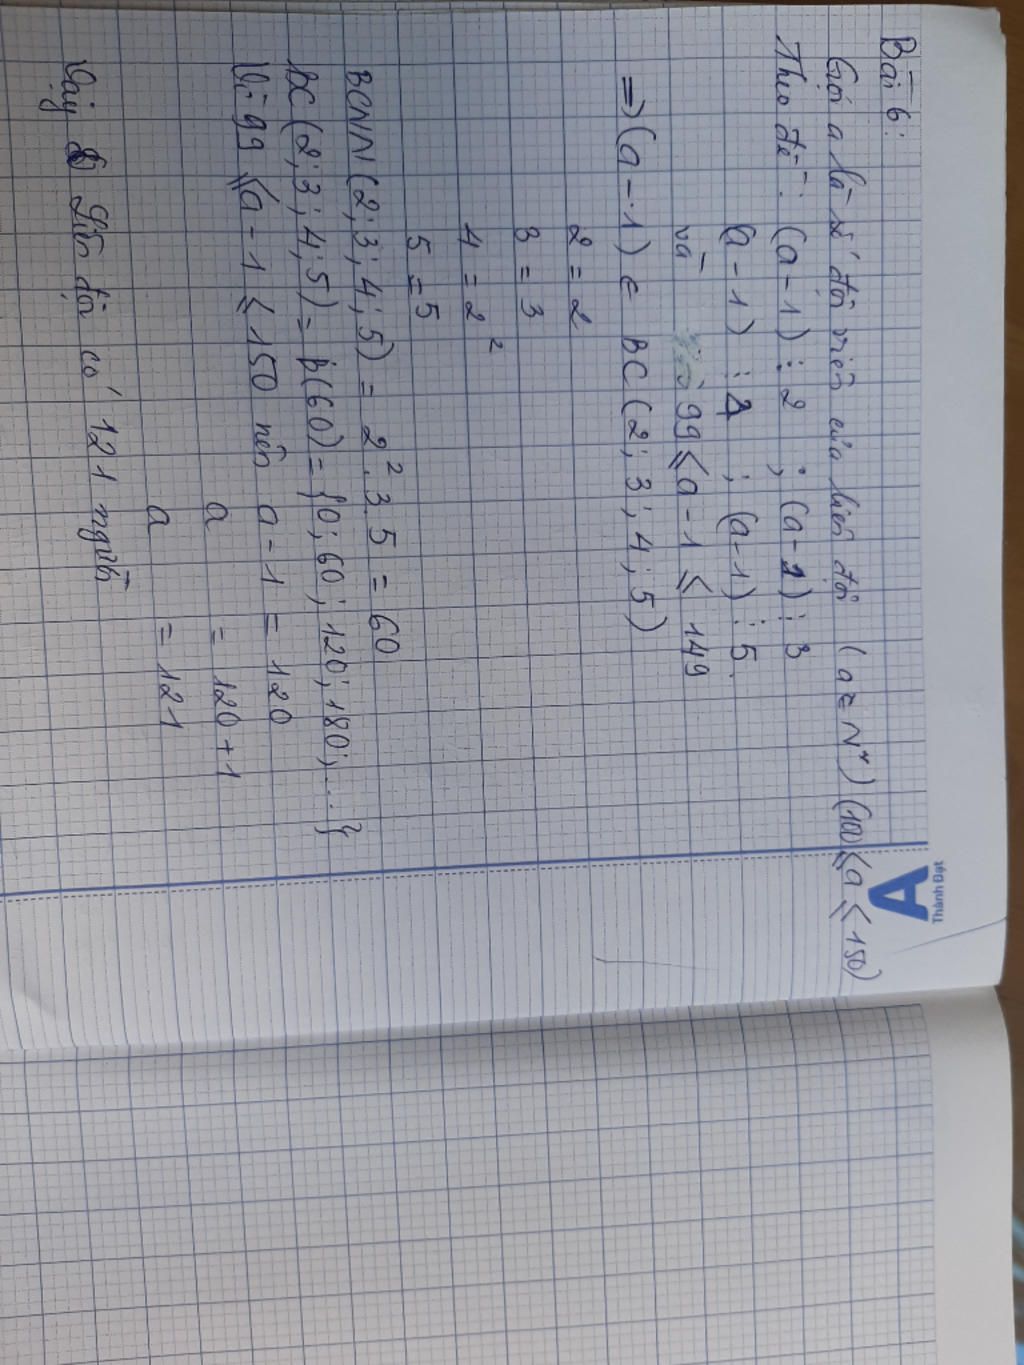 A
Thành Đạt
Bài 6:
Gọi a là số đội viên của liên đội (a ∈ N*) (100 ≤ a ≤ 150)
Theo đề: (a - 1) ⋮ 2 ; (a - 1) ⋮ 3
(a - 1) ⋮ 4 ; (a - 1) ⋮ 5
và 99 ≤ a - 1 ≤ 149
=> (a - 1) ∈ BC (2; 3; 4; 5)
2 = 2
3 = 3
4 = 2²
5 = 5
BCNN (2; 3; 4; 5) = 2².3.5 = 60
BC (2; 3; 4; 5) = B(60) = {0; 60; 120; 180; ...}
Vì 99 ≤ a - 1 ≤ 150 nên a - 1 = 120
a = 120 + 1
a = 121
Vậy Liên đội có 121 người